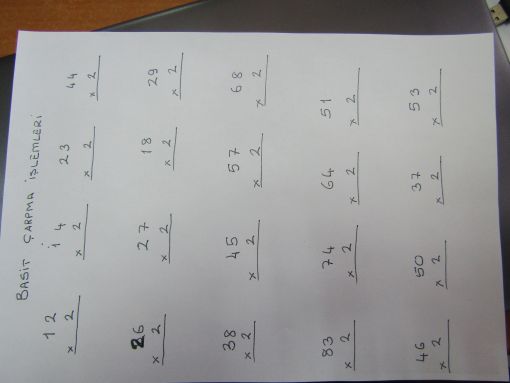 BASİT ÇARPMA İŞLEMLERİ
12 14 23 44
x 2 x 2 x 2 x 2
26 27 18 29
x 2 x 2 x 2 x 2
38 45 57 68
x 2 x 2 x 2 x 2
83 74 64 51
x 2 x 2 x 2 x 2
46 50 37 53
x 2 x 2 x 2 x 2